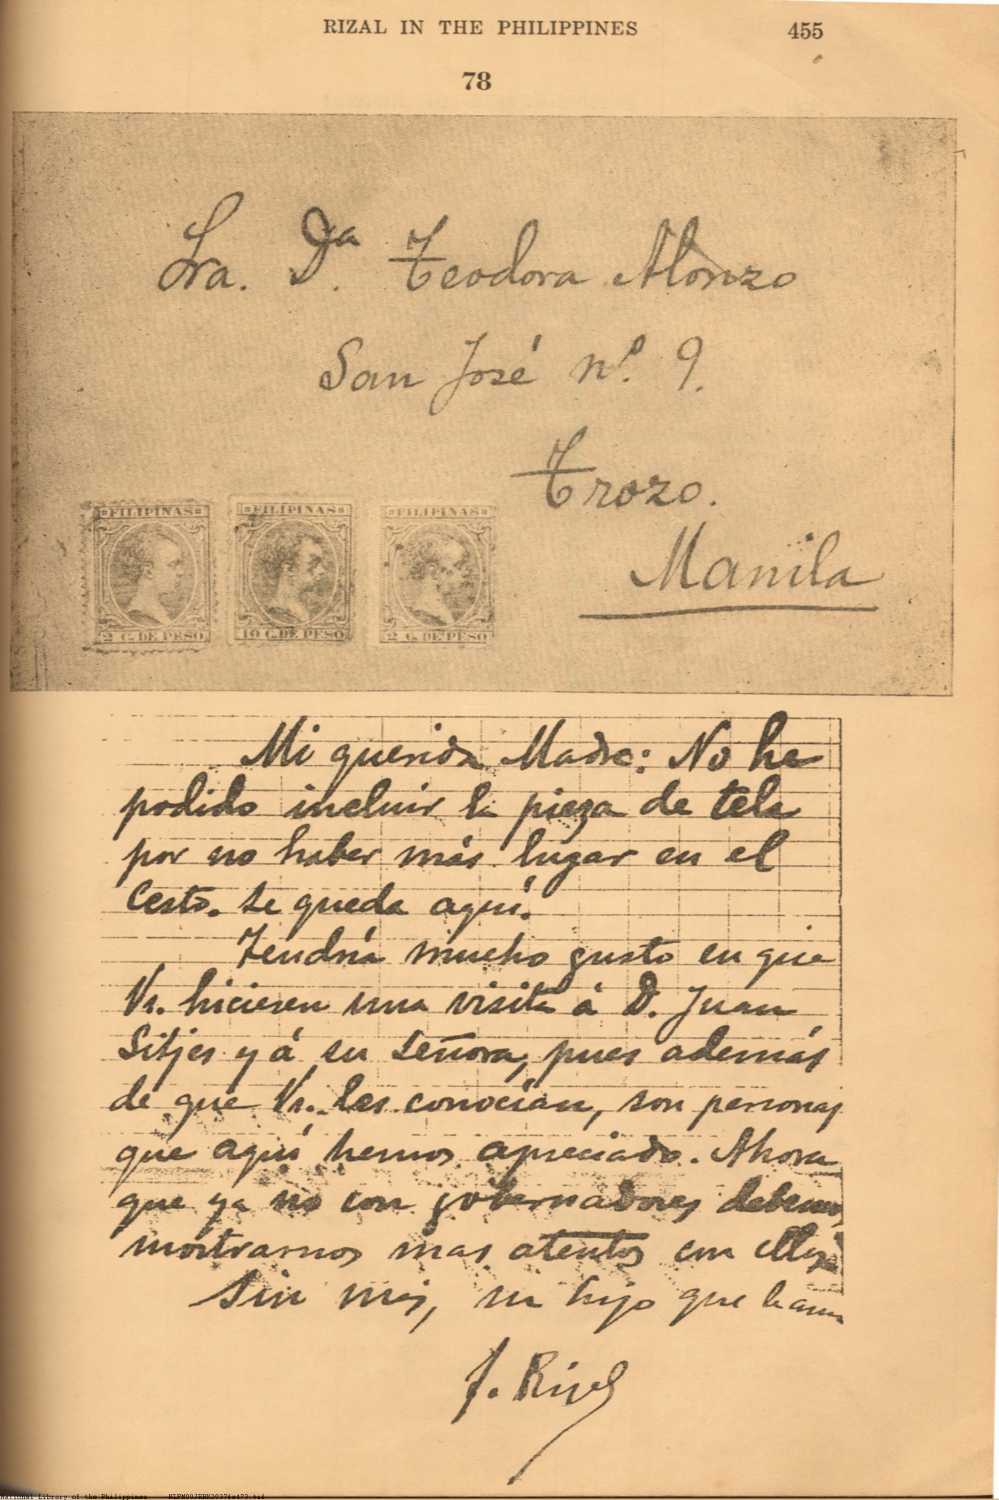 RIZAL IN THE PHILIPPINES 455
78
Sra. Dª Teodora Alonzo
San José nº. 9.
Trozo.
Manila
FILIPINAS FILIPINAS FILIPINAS
2 C. DE PESO 10 C. DE PESO 2 C. DE PESO
Mi querida Madre: No he
podido incluir la pieza de tela
por no haber más lugar en el
Cesto. Se queda aquí.
Tendría mucho gusto en que
Vs. hiciesen una visita á D. Juan
Sitjes y á su señora, pues además
de que Vs. les conocían, son personas
que aquí hemos apreciado. Ahora
que ya no son gobernadores debemos
mostrarnos mas atentos con ellos
Sin más, su hijo que le ama
J. Rizal
National Library of the Philippines